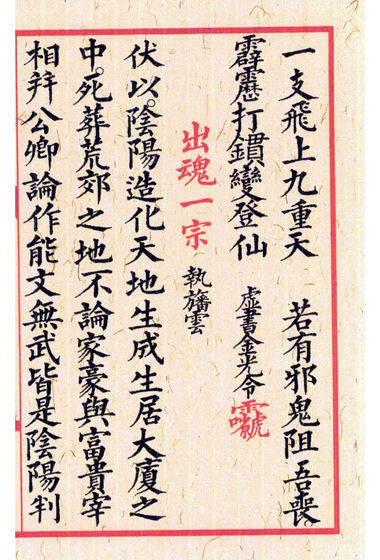 一支飛上九重天 若有邪鬼阻吾喪
霹靂打鏆變登仙 虛書金光令
出魂一宗 執旛雲
伏以陰陽造化天地生成生居大廈之
中。死葬荒郊之地不論家豪與富貴宰
相并公卿論作能文無武皆是陰陽判